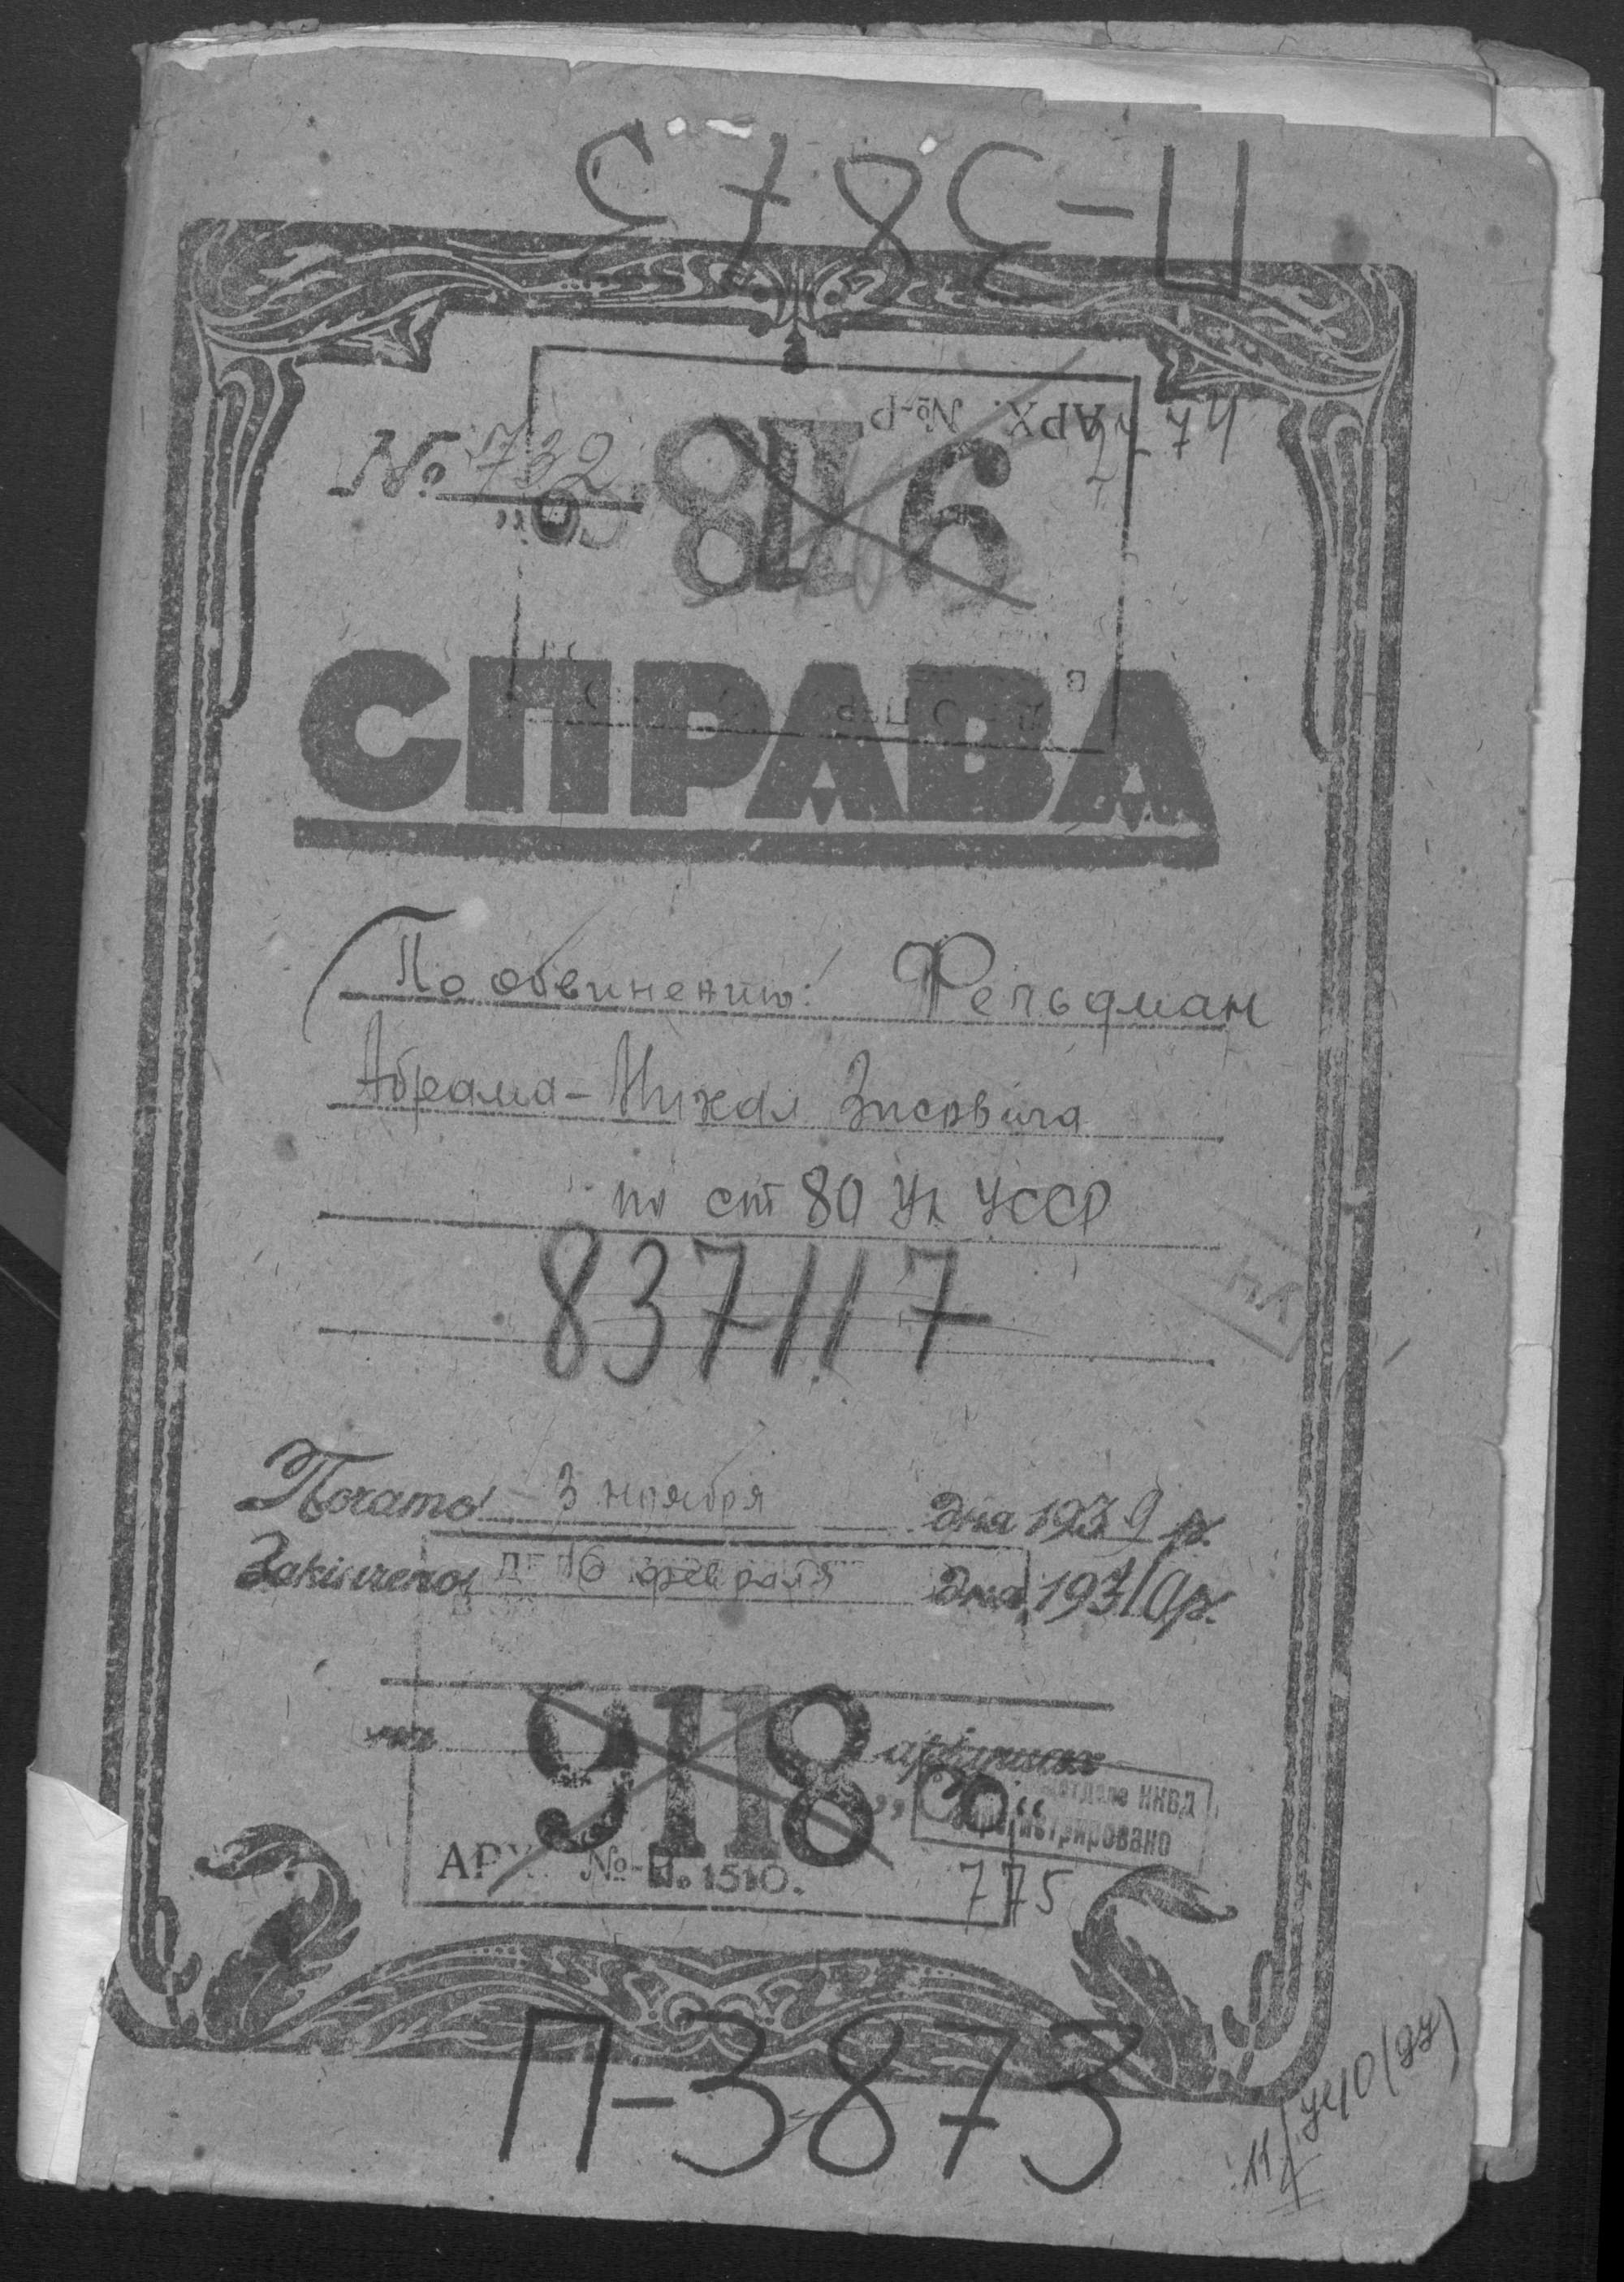 П-3873
АРХ. №-Р
№ 732
9118
"СО"
СПРАВА
По обвинению: Фельдман
Абрама-Михал Зисовича
по ст 80 УК УССР
837117
Почато 3 ноября дня 1939 р.
Закінчено 16 февраля дня 1940 р.
на аркушах
9118 „СО“
отделе НКВД
зарегистрировано
АРХ. №-П. 1510.
775
П-3873